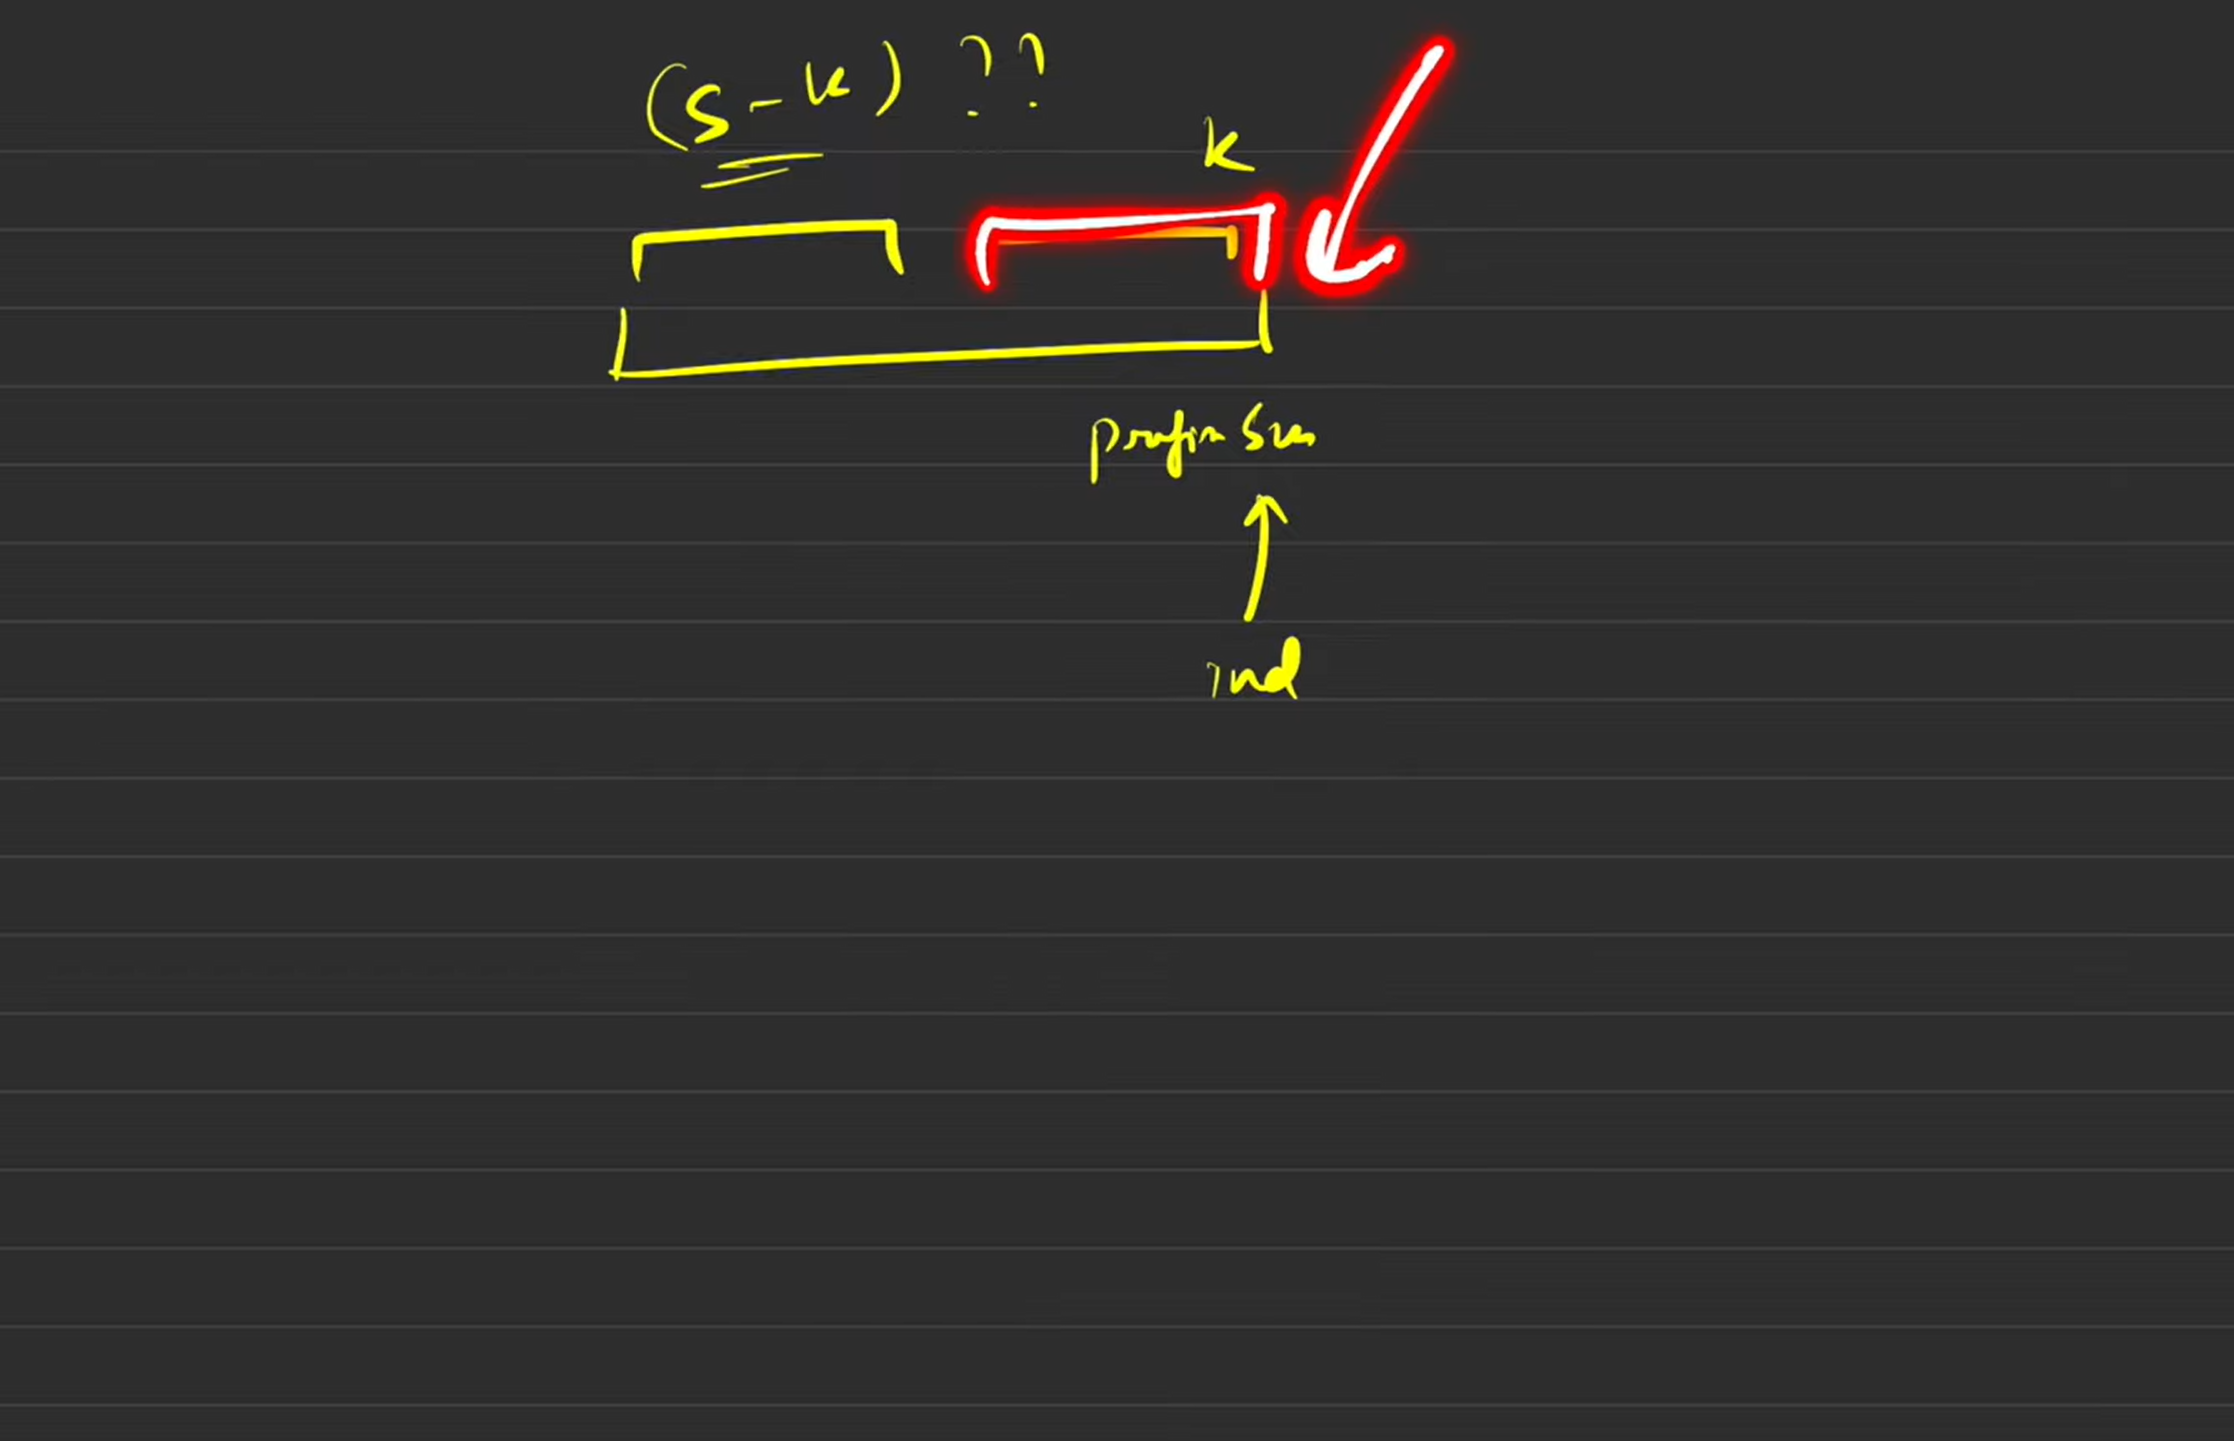 (s-k) ??
k
prefix Sum
ind